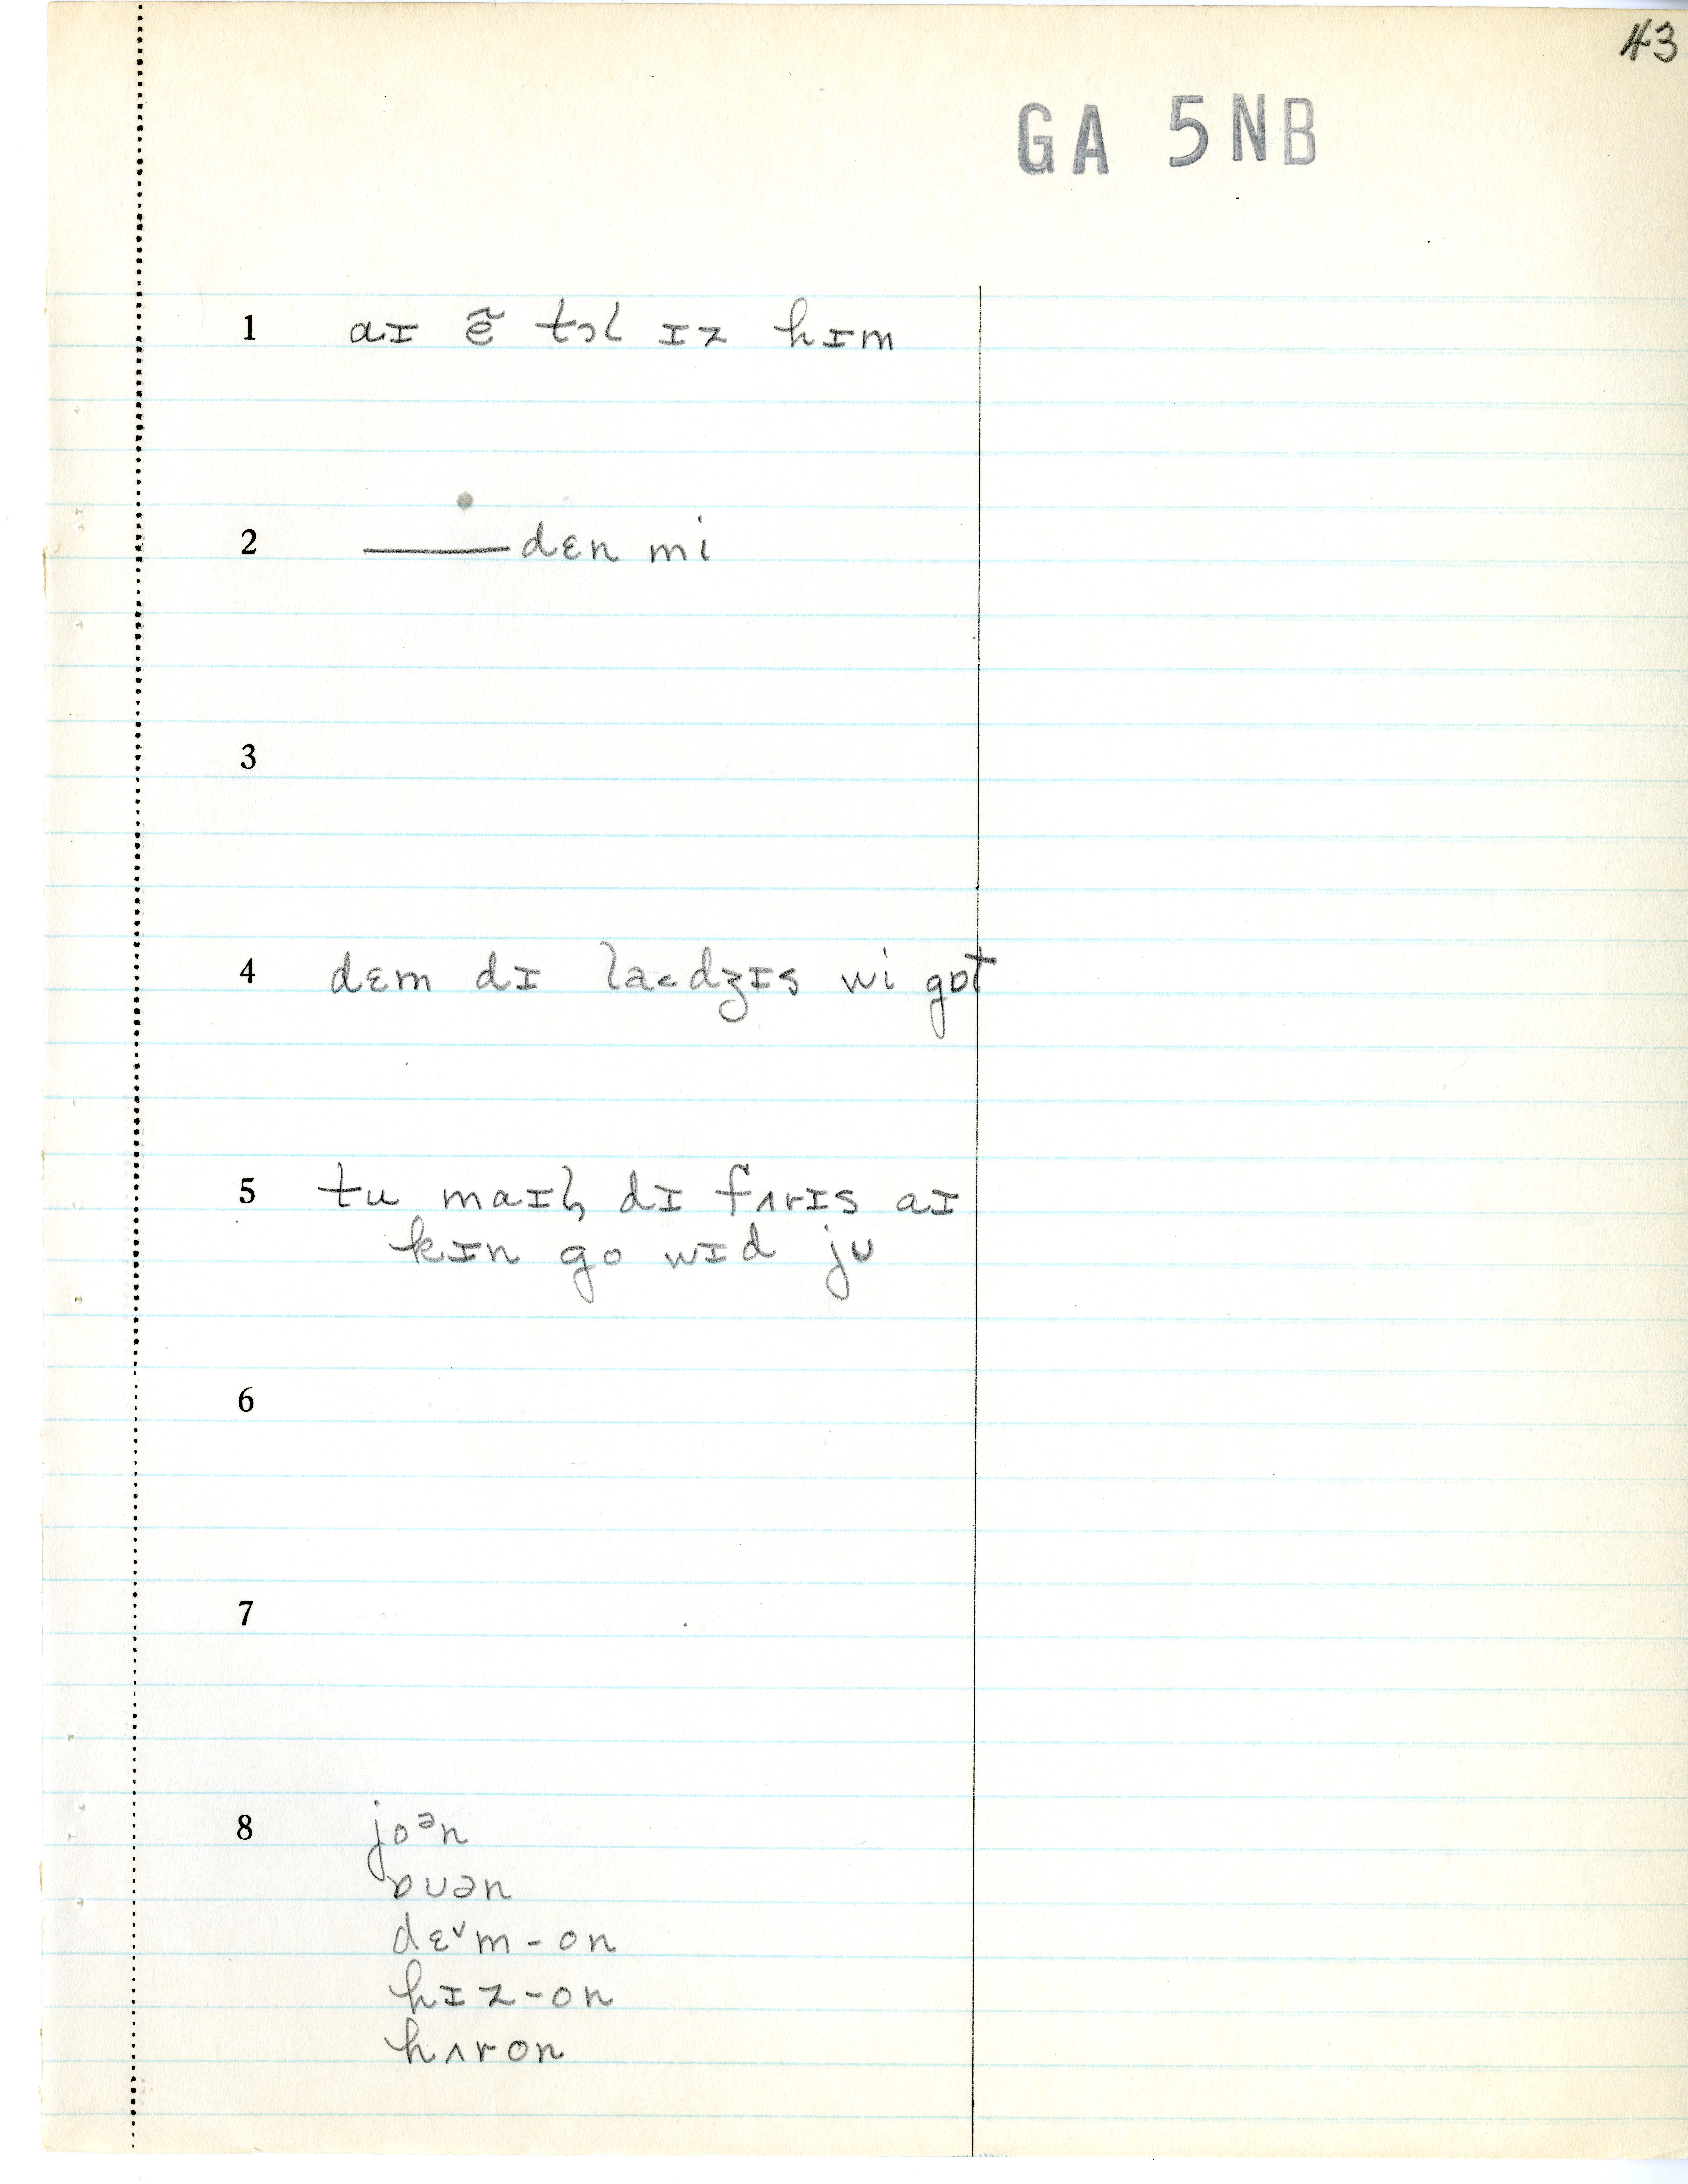 43
GA 5NB
1 aɪ ẽ tɔl ɪz hɪm
2 ——— dɛn mi
3
4 dɛm dɪ la<dʒɪs wi gɒt
5 tu maɪl̥ dɪ fʌrɪs aɪ
kɪn go wɪd ju
6
7
8 joᵊn
ɒuən
dɛ˅m-on
hɪz-on
hʌron